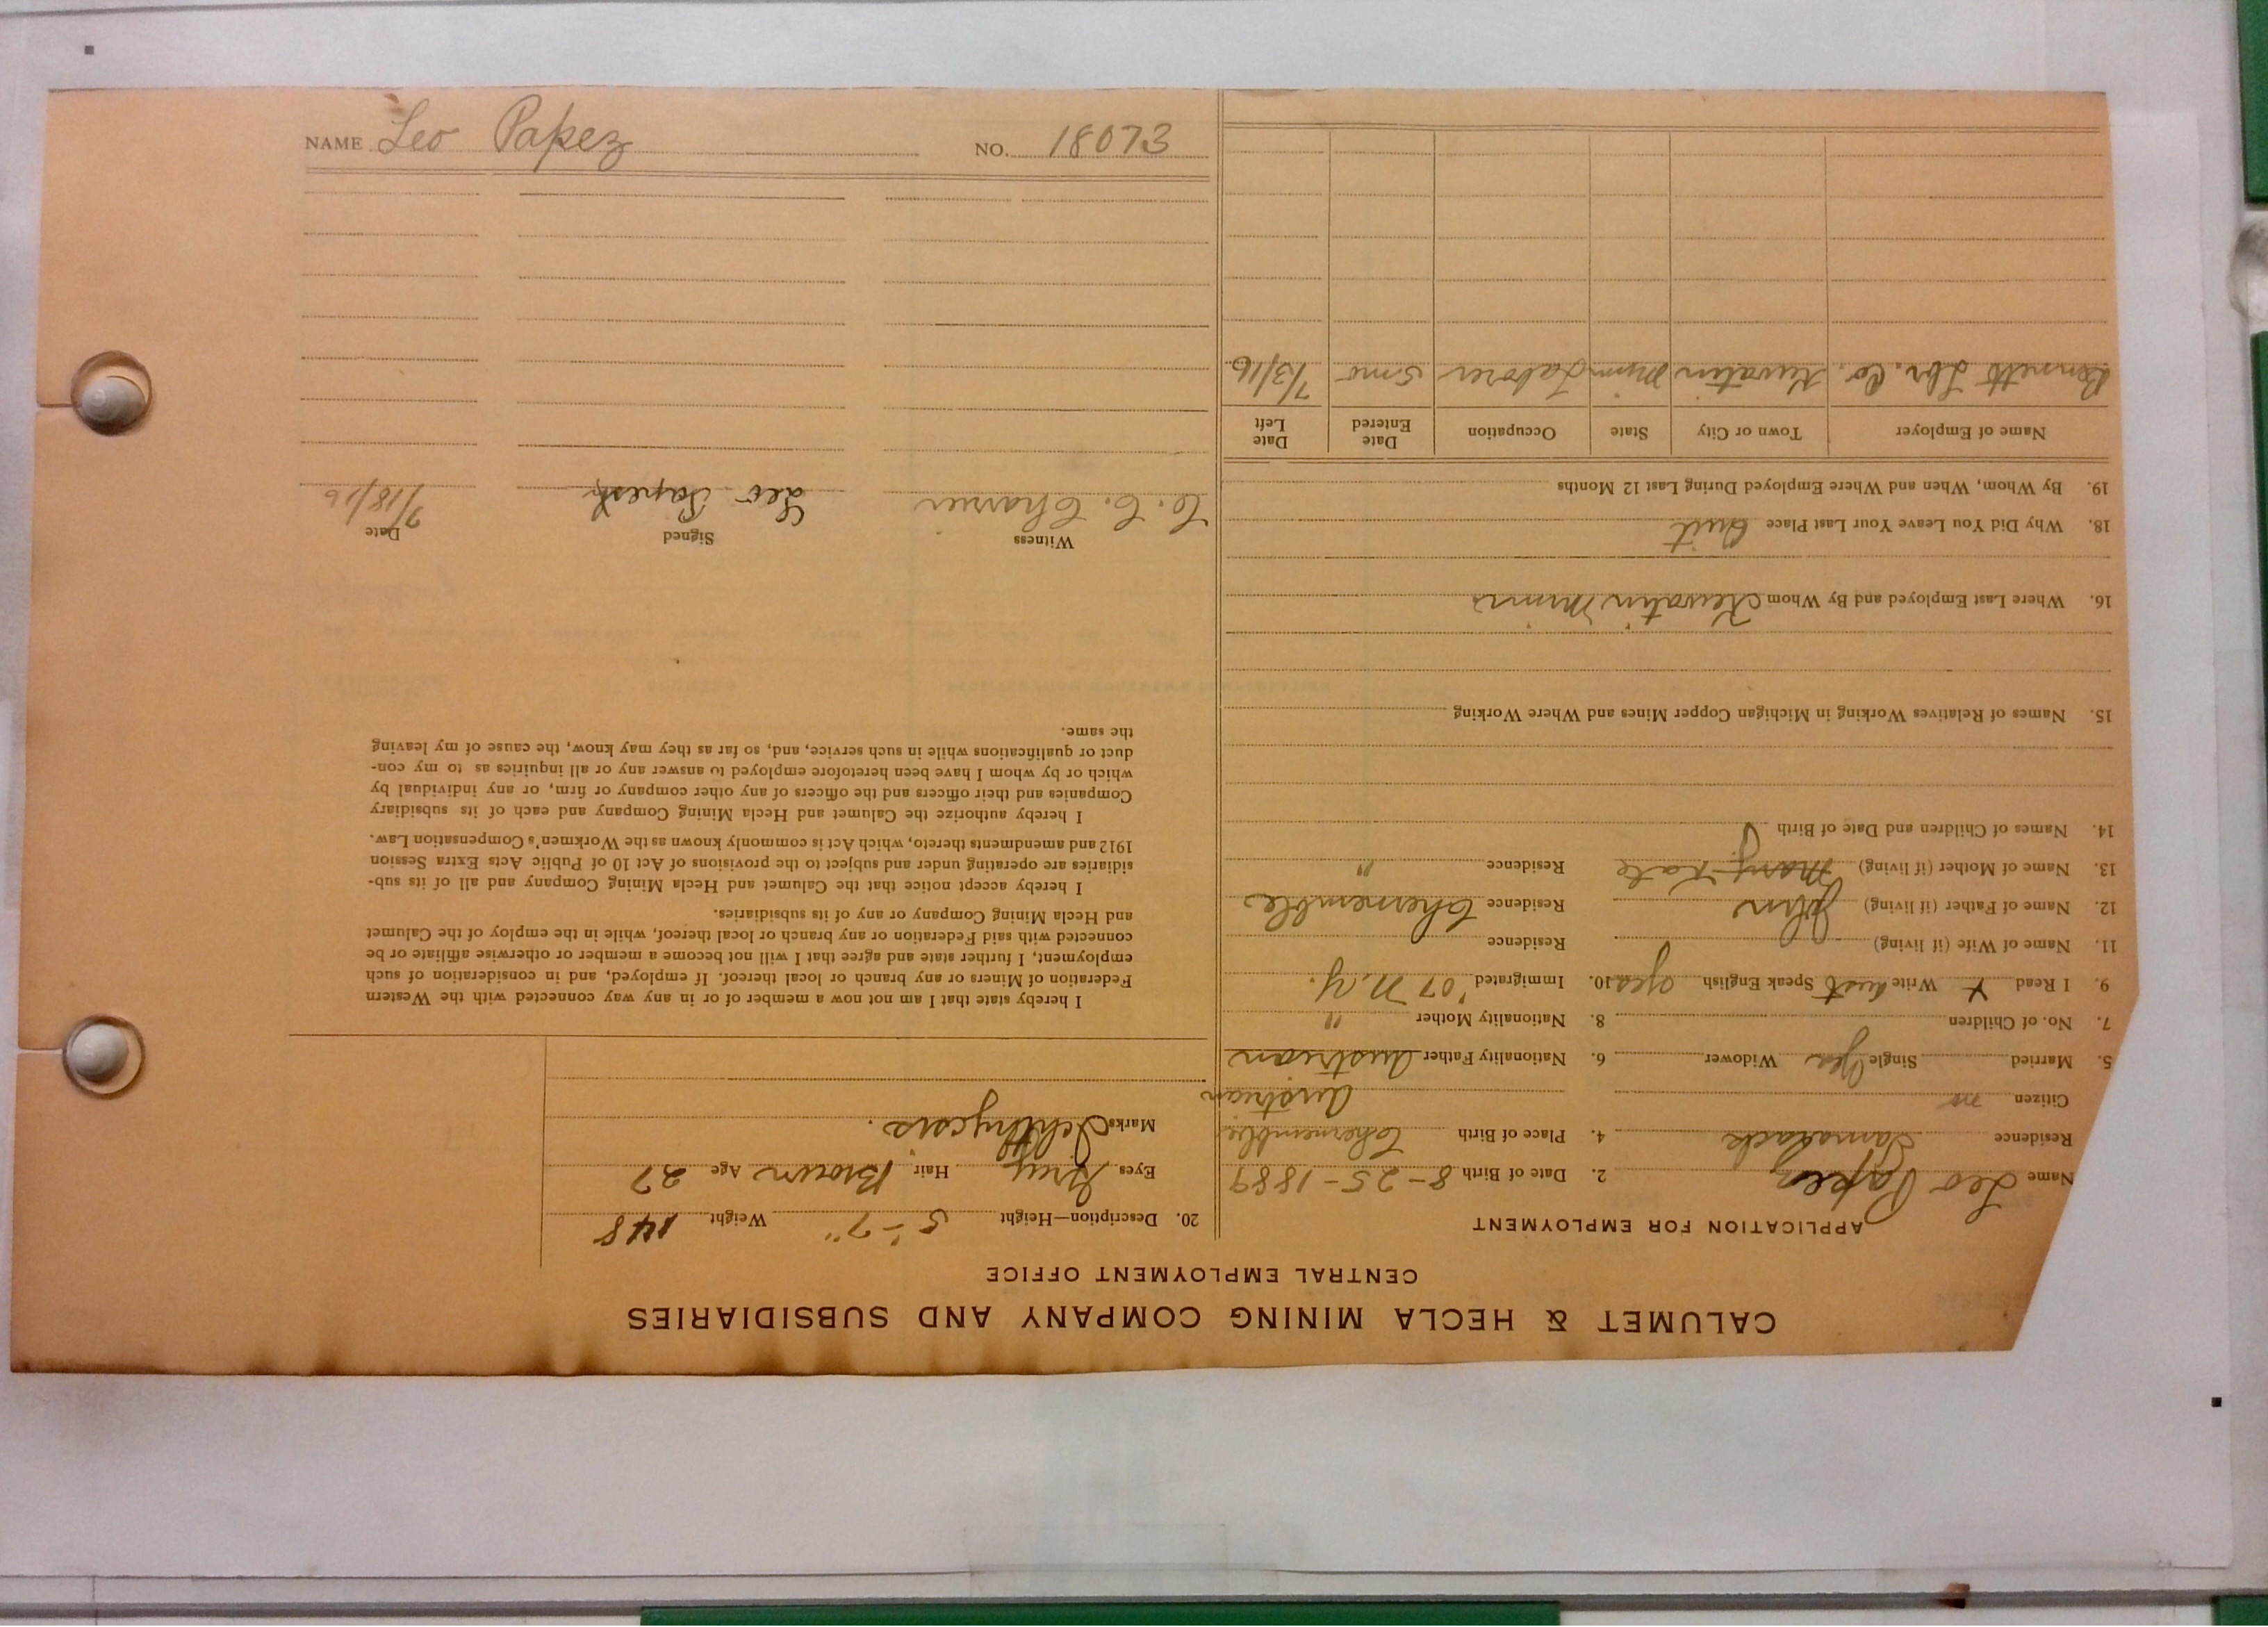 CALUMET & HECLA MINING COMPANY AND SUBSIDIARIES
CENTRAL EMPLOYMENT OFFICE
APPLICATION FOR EMPLOYMENT
Name Leo Papez 2. Date of Birth 8-25-1889
Residence 4. Place of Birth Chernemble
Citizen no Austrian
5. Married Single Yes Widower 6. Nationality Father Austrian
7. No. of Children 8. Nationality Mother "
9. I Read Write Aust Speak English yes 10. Immigrated '07 N.Y.
11. Name of Wife (if living) Residence
12. Name of Father (if living) John Residence Chernemble
13. Name of Mother (if living) Mary Kate Residence "
14. Names of Children and Date of Birth
15. Names of Relatives Working in Michigan Copper Mines and Where Working
16. Where Last Employed and By Whom Kewatin Minn
18. Why Did You Leave Your Last Place Quit
19. By Whom, When and Where Employed During Last 12 Months
Name of Employer Town or City State Occupation Date Entered Date Left
Bennett Lbr. Co. Kewatin Minn Laborer 5 mo 7/3/16
20. Description—Height 5'-7" Weight 148
Eyes Grey Hair Brown Age 27
Marks
I hereby state that I am not now a member of or in any way connected with the Western
Federation of Miners or any branch or local thereof. If employed, and in consideration of such
employment, I further state and agree that I will not become a member or otherwise affiliate or be
connected with said Federation or any branch or local thereof, while in the employ of the Calumet
and Hecla Mining Company or any of its subsidiaries.
I hereby accept notice that the Calumet and Hecla Mining Company and all of its sub-
sidiaries are operating under and subject to the provisions of Act 10 of Public Acts Extra Session
1912 and amendments thereto, which Act is commonly known as the Workmen's Compensation Law.
I hereby authorize the Calumet and Hecla Mining Company and each of its subsidiary
Companies and their officers and the officers of any other company or firm, or any individual by
which or by whom I have been heretofore employed to answer any or all inquiries as to my con-
duct or qualifications while in such service, and, so far as they may know, the cause of my leaving
the same.
Witness Signed Date
C. C. Leo 7/18/16
NAME Leo Papez NO. 18073